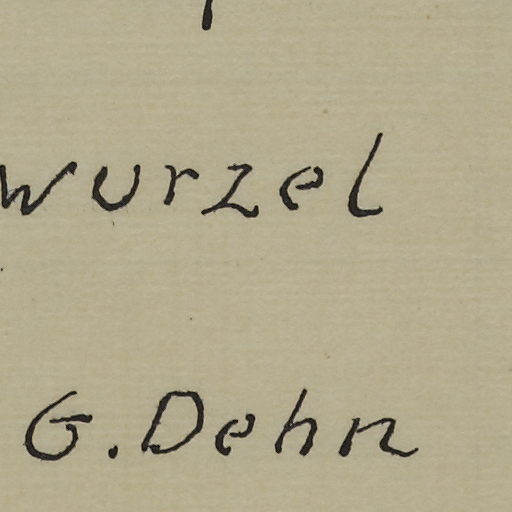 wurzel
G. Dehn